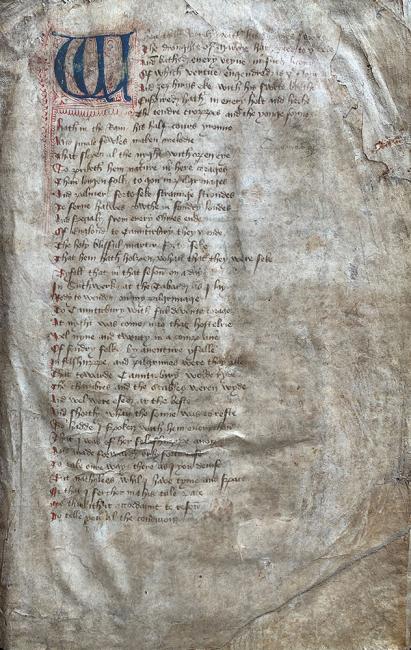 W
The droughte of
And bathed euery veyne
Of which vertue engendred is
And zephirus eke with his swete
Enspired hath in euery holt and heth
The tendre croppes and the yonge sonne
hath in the Ram his half cours yronne
And smale foweles maken melodie
That slepen al the nyght with open eye
So priketh hem nature in here corages
Than longen folk to gon in pilgrimages
And palmers for to seke straunge strondes
To ferne halwes couthe in sondry londes
And specialy from euery shires ende
Of Engelond to Caunterbury they wende
The holy blisful martir for to seke
That hem hath holpen whan that they were seke
Byfell that in that seson on a day
In Suthwerk at the Tabard as I lay
Redy to wenden on my pilgrimage
To Caunterbury with ful devoute corage
At nyght was come into that hostelrie
Wel nyne and twenty in a companie
Of sondry folk by auenture yfalle
In felshippe and pilgrimes were they alle
That towarde Caunterbury wolde ryde
The chambres and the stables weren wyde
And wel were esed at the beste
And shortly whan the sonne was to reste
So hadde I spoken with hem euerychon
That I was of her felshippe anon
And made forward erly for to
To take oure way there as I you deuise
But natheles whils I haue tyme and space
Or that I ferther in this tale pace
me thinketh it accordaunt to reson
To telle yow al the condicion